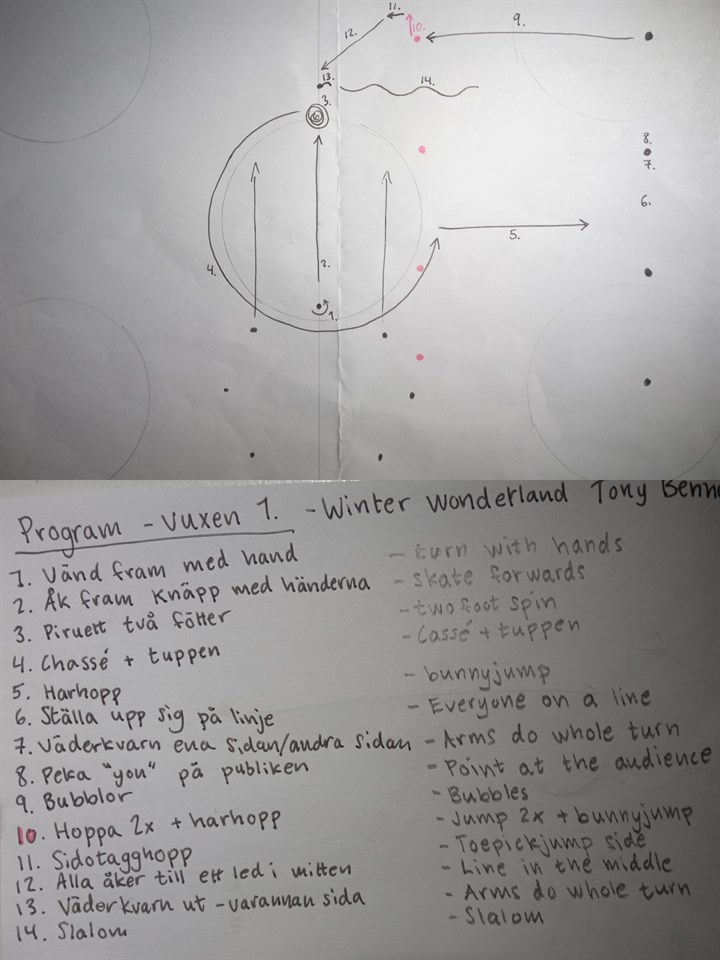 11.
10.
9.
12.
13.
14.
3.
8.
7.
6.
2.
5.
4.
1.
Program - Vuxen 1. - Winter Wonderland Tony Benne
1. Vänd fram med hand - turn with hands
2. Åk fram knäpp med händerna - skate forwards
3. Piruett två fötter - two foot spin
4. Chassé + tuppen - Cassé + tuppen
5. Harhopp - bunnyjump
6. Ställa upp sig på linje - Everyone on a line
7. Väderkvarn ena sidan/andra sidan - Arms do whole turn
8. Peka "you" på publiken - Point at the audience
9. Bubblor - Bubbles
10. Hoppa 2x + harhopp - Jump 2x + bunnyjump
11. Sidotagghopp - Toepickjump side
12. Alla åker till ett led i mitten - Line in the middle
13. Väderkvarn ut - varannan sida - Arms do whole turn
14. Slalom - Slalom